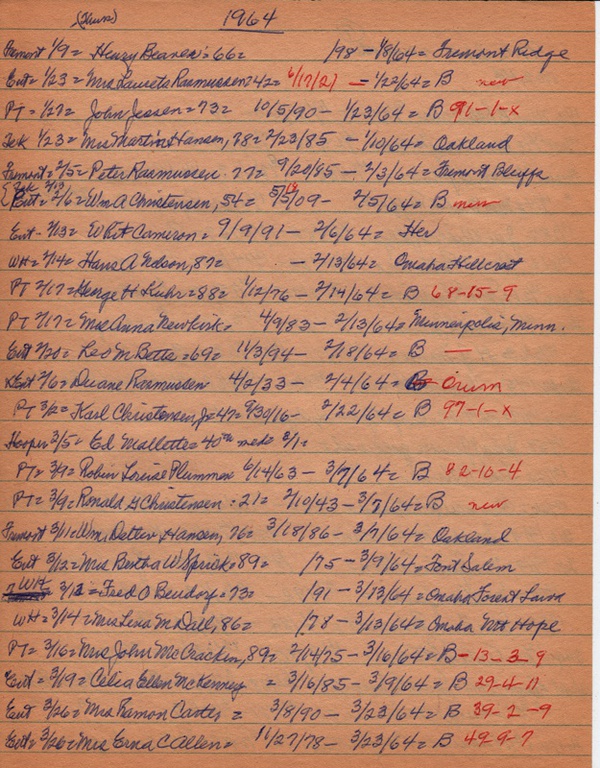 (Thurs) 1964
Fremont 1/9 = Henry Beaner = 66 = /98 - 1/8/64 = Fremont Ridge
Ent = 1/23 = Mrs Laureta Rasmussen = 42 = 6/17/21 - = 1/22/64 = B new
PT = 1/27 = John Jessen = 73 = 10/5/90 - 1/23/64 = B 91-1-x
Tek 1/23 = Mrs Martin Hansen, 78 = 2/23/85 - 1/10/64 = Oakland
Fremont = 2/5 = Peter Rasmussen 77 = 9/20/85 - 2/3/64 = Fremont Bluffs
Ent = 2/6 = Wm A Christensen, 54 = 5/5/09 - 2/5/64 = B new
Ent - 2/13 = Whit Cameron = 9/9/91 - 2/6/64 = Her
WH = 2/14 = Hans A Nelson, 87 = - 2/13/64 = Omaha Hillcrest
PT 2/17 = George H Kuhr = 88 = 1/12/76 - 2/14/64 = B 68-15-9
PT 2/17 = Mrs Anna Newkirk = 4/9/83 - 2/13/64 = Minneapolis, Minn.
Ent 2/20 = Leo M Betts = 69 = 11/3/94 - 2/18/64 = B -
x Ent 2/6 = Duane Rasmussen 4/2/33 - 2/4/64 = B Crum
PT 3/2 = Karl Christensen, Jr = 47 = 9/30/16 - 2/22/64 = B 97-1-x
Hooper 3/5 = Ed Mallette = 40th
PT = 3/9 = Robin Louise Plummer 6/14/63 - 3/7/64 = B 82-10-4
PT = 3/9 = Ronald G Christensen = 21 = 2/10/43 - 3/7/64 = B new
Fremont 3/11 = Wm. Detlev Hansen, 76 = 3/18/86 - 3/7/64 = Oakland
Ent 3/12 = Mrs Bertha W Spriek = 89 = /75 - 3/9/64 = Font Salem
WH 3/12 = Fred O Beudorf = 73 = /91 - 3/13/64 = Omaha Forest Lawn
WH = 3/14 = Mrs Lena M Dall, 86 = /78 - 3/13/64 = Omaha Mt Hope
PT = 3/16 = Mrs John McCrackin, 89 = 2/14/75 - 3/16/64 = B - 13-3-9
Ent = 3/19 = Celia Ellen McKenney = 3/16/85 - 3/9/64 = B 29-4-11
Ent 3/26 = Mrs Ramon Carter = 3/8/90 - 3/23/64 = B 39-2-9
Ent = 3/26 = Mrs Erna C Allen = 11/27/78 - 3/23/64 = B 49-9-7